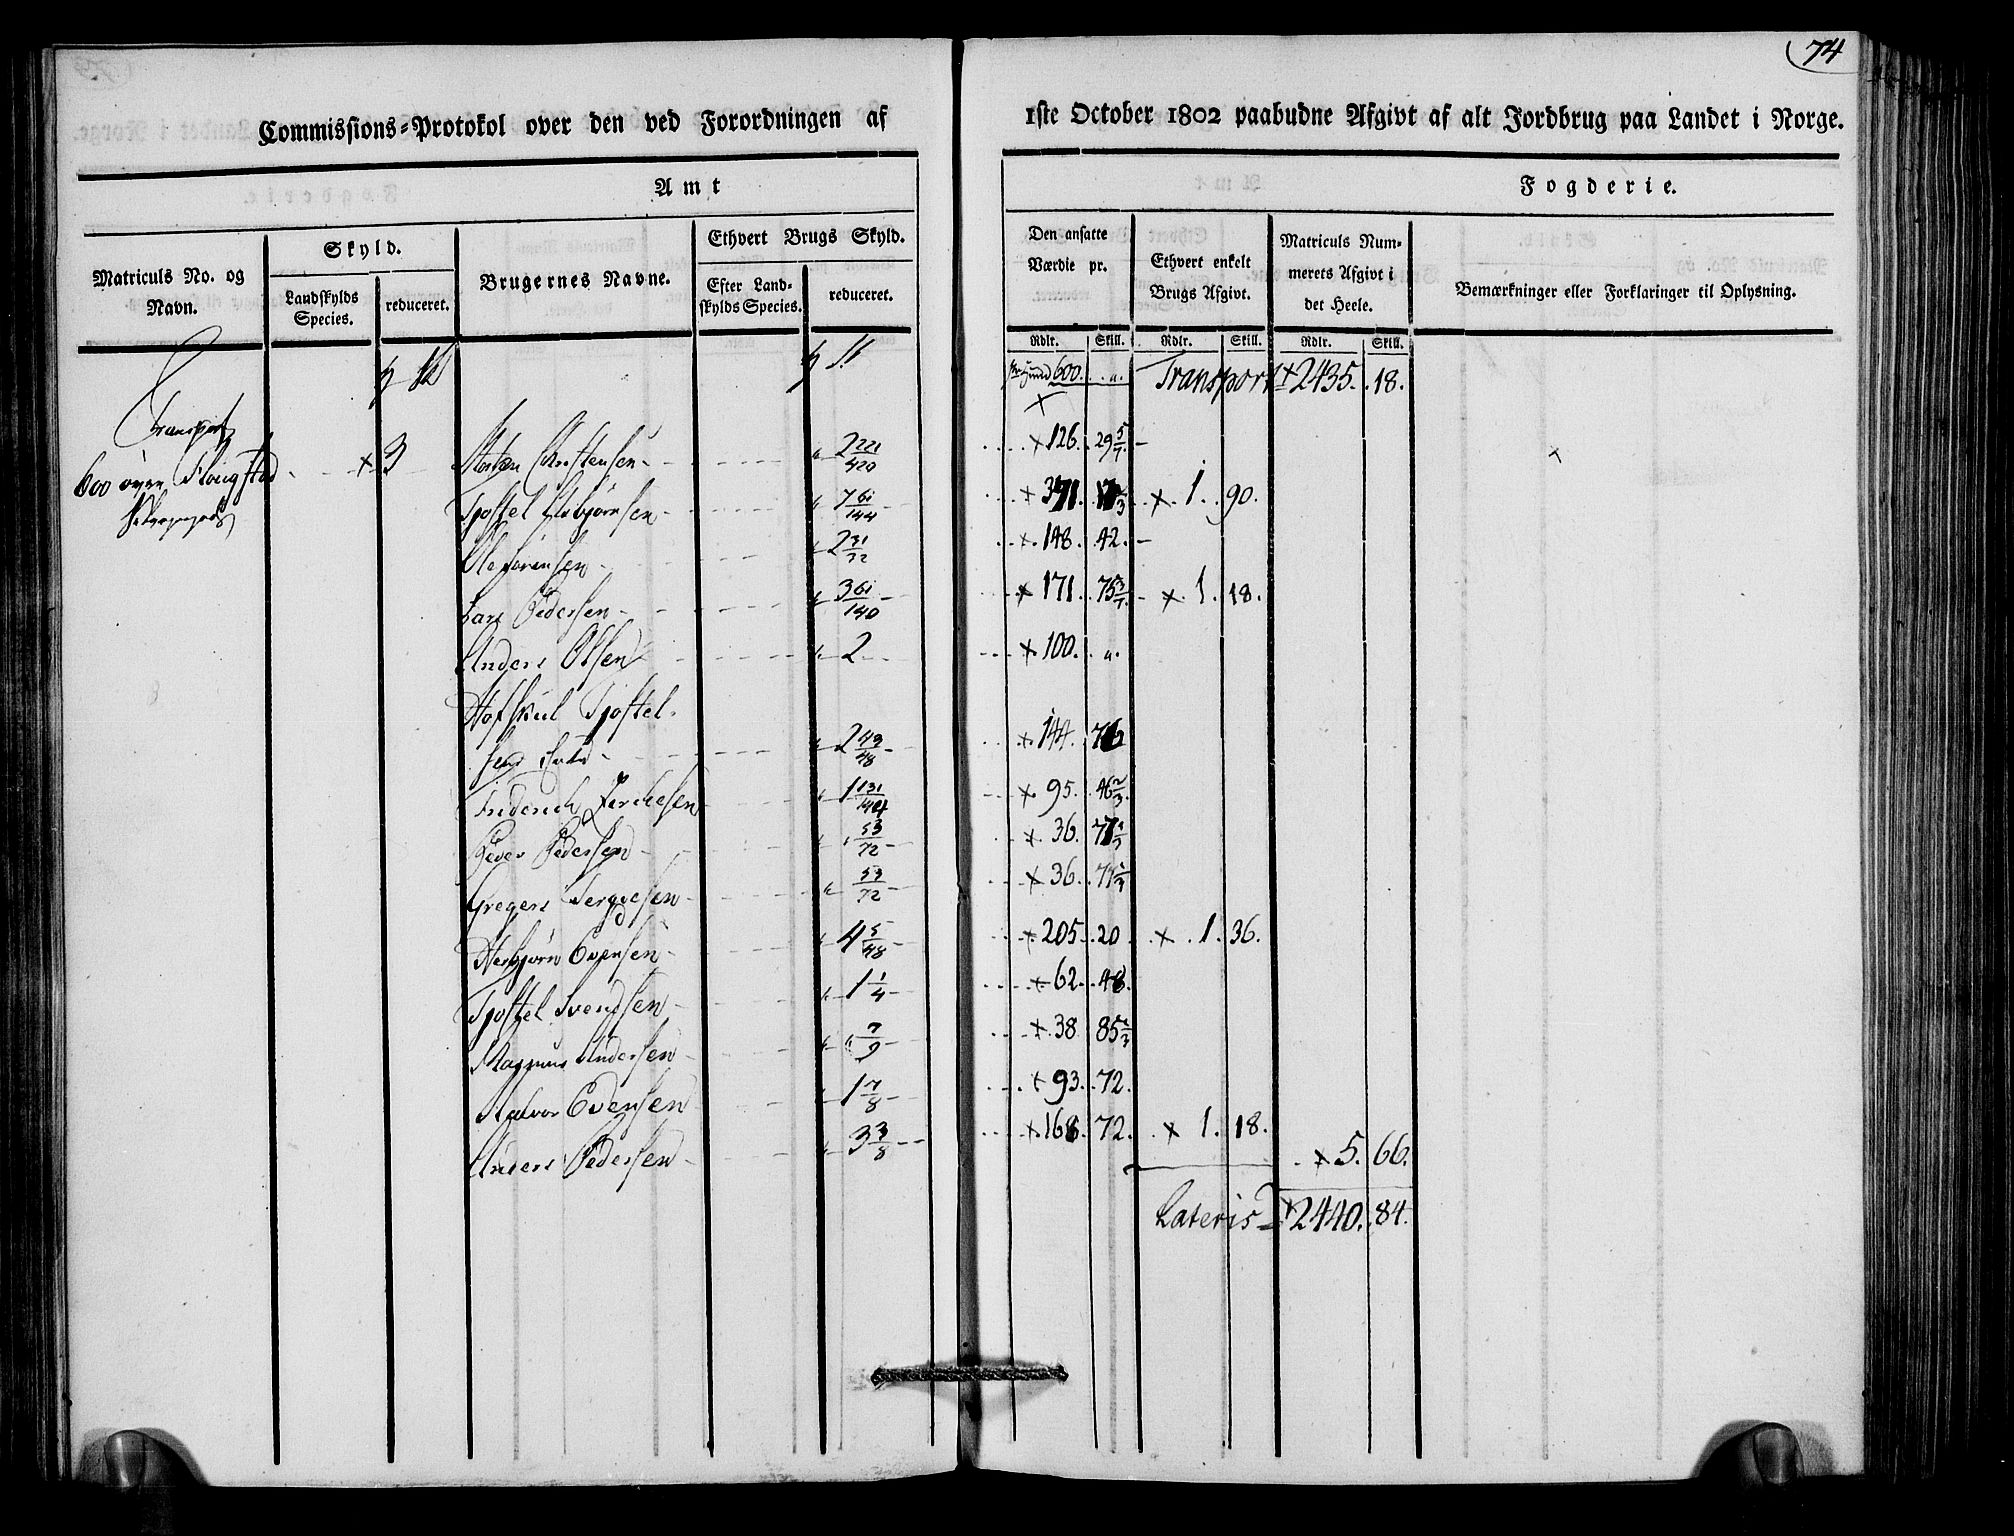 74
Commissions-Protokol over den ved Forordningen af 1ste October 1802 paabudne Afgivt af alt Jordbrug paa Landet i Norge.
Amt
Fogderie.
Matriculs No. og Navn.
Skyld.
Landskylds Species.
reduceret.
Brugernes Navne.
Ethvert Brugs Skyld.
Efter Landskylds Species.
reduceret.
Den ansatte Værdie pr.
Ethvert enkelt Brugs Afgivt.
Matriculs Nummerets Afgivt i det Heele.
Bemærkninger eller Forklaringer til Oplysning.
Rdlr. Skill. Rdlr. Skill. Rdlr. Skill.
600. Transport 2435. 18.
Transport
600 øvre x 3 Christensen 2 221/420 x 126. 29 5/7
Tjostel Asbjørnsen 7 61/144 x 371. x 1. 90.
Ole Sørensen 2 31/72 x 148. 42.
Lars Pedersen 3 61/140 x 171. 75 3/7 x 1. 18.
Anders Olsen 2 x 100. "
Tjostel-
sens 2 43/48 x 144. 76
Friderich 1 131/144 x 95. 46 2/3
Peder Pedersen 53/72 x 36. 77 1/3
Gregers Tergesen 53/72 x 36. 77 1/3
Herbjørn Evensen 4 5/48 x 205. 20 x 1. 36.
Tjostel Svendsen 1 1/4 x 62. 48.
Magnus Andersen 7/9 x 38 85 1/3
Halvor Evensen 1 7/8 x 93. 72.
Anders Pedersen 3 3/8 x 168. 72. x 1. 18.
x 5. 66.
Lateris x 2440. 84.